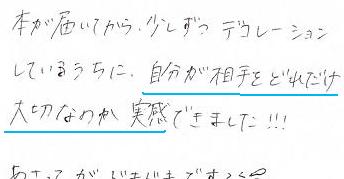 本が届いてから、少しずつ デコレーション
しているうちに、自分が相手をどれだけ
大切なのか 実感できました!!!